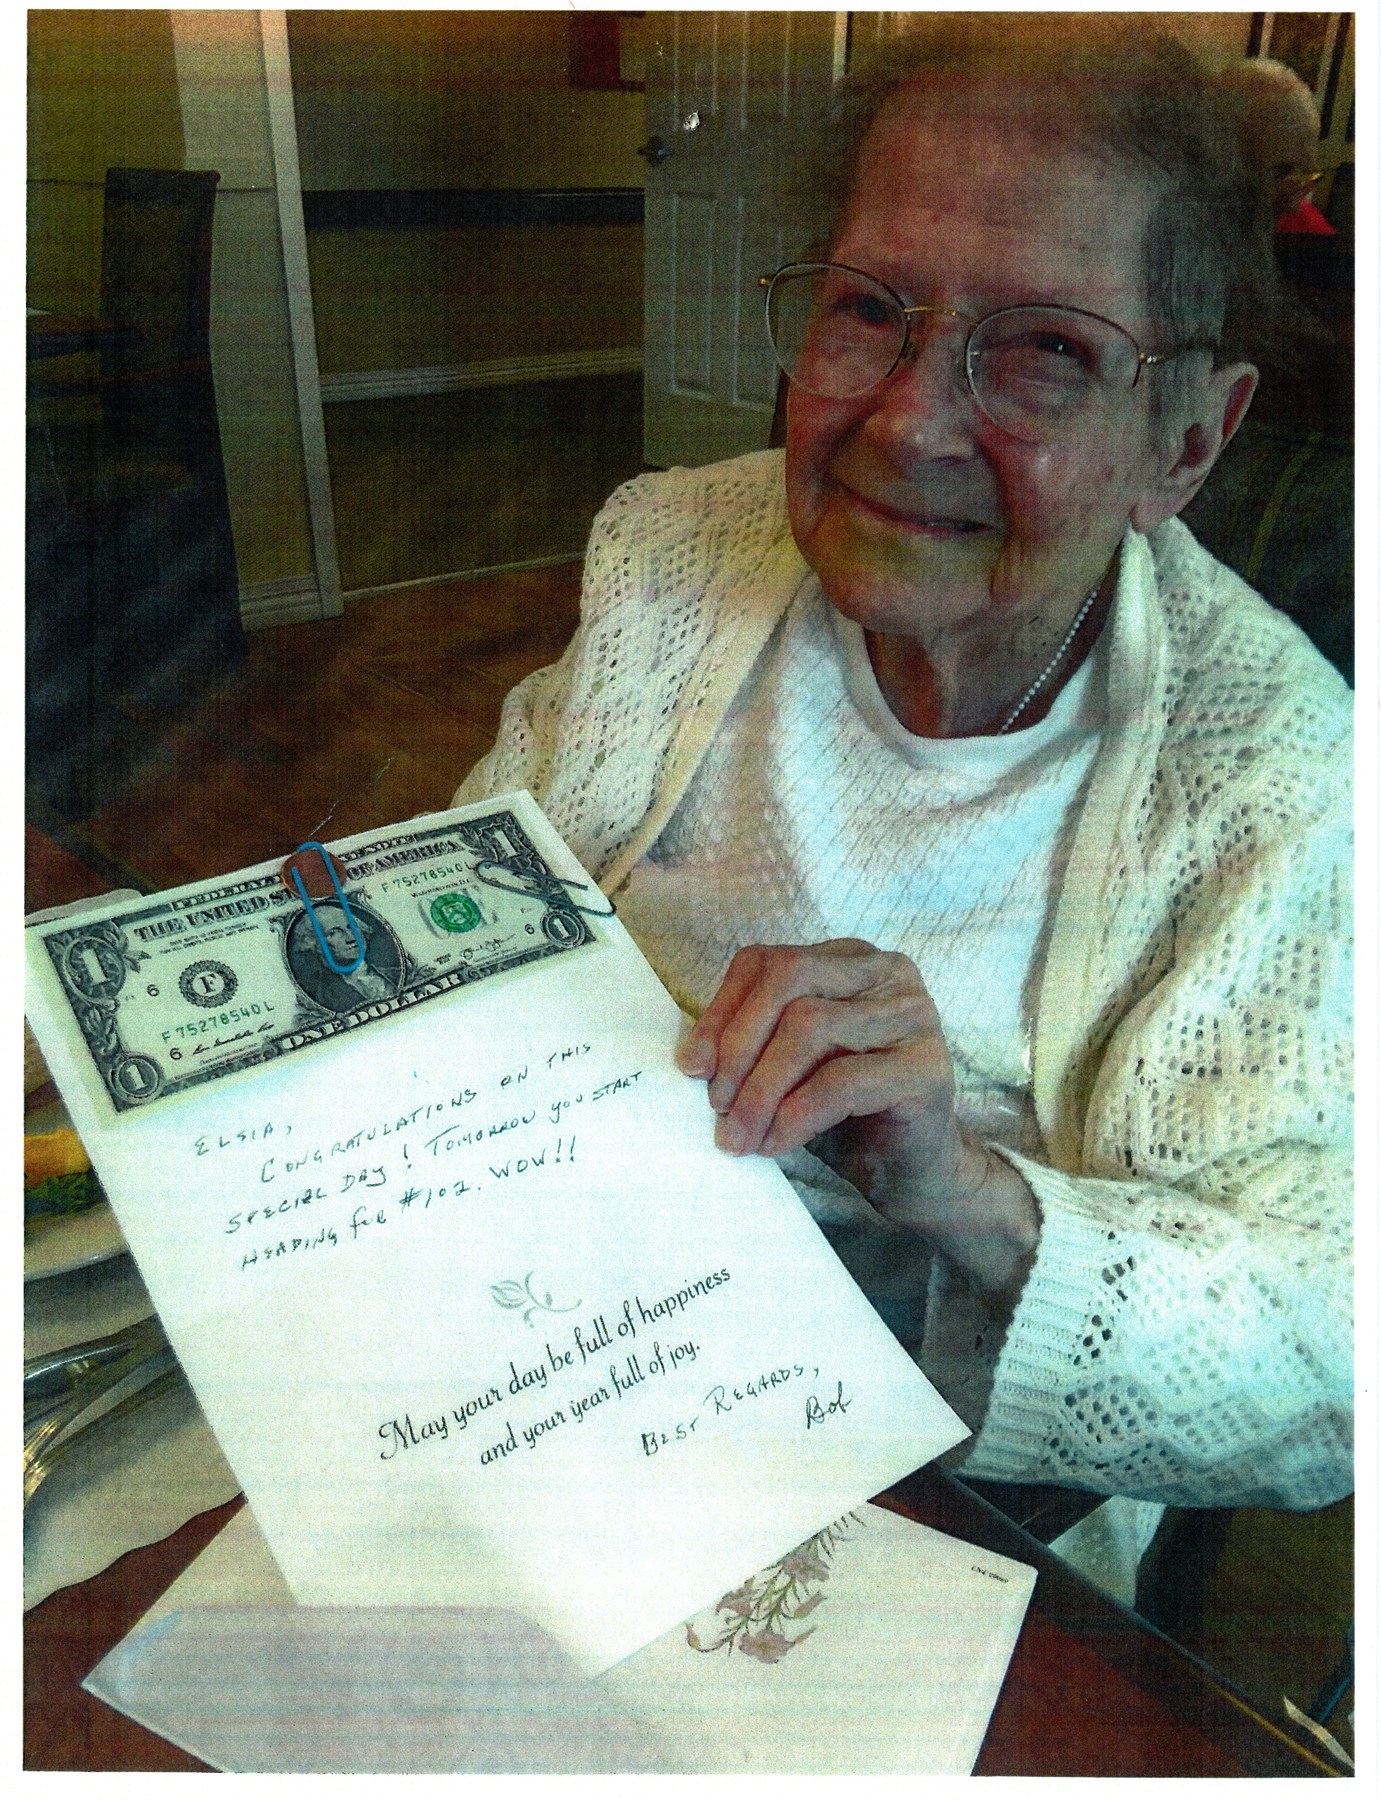 FEDERAL
THE UNITED ST
OF AMERICA
F 75278540 L
WASHINGTON, D.C.
1
1
6
F
6
F 75278540 L
6
1
1
ONE DOLLAR
ELSIA,
CONGRATULATIONS ON THIS
SPECIAL DAY! TOMORROW YOU START
HEADING FOR #102. WOW!!
May your day be full of happiness
and your year full of joy.
BEST REGARDS,
Bob